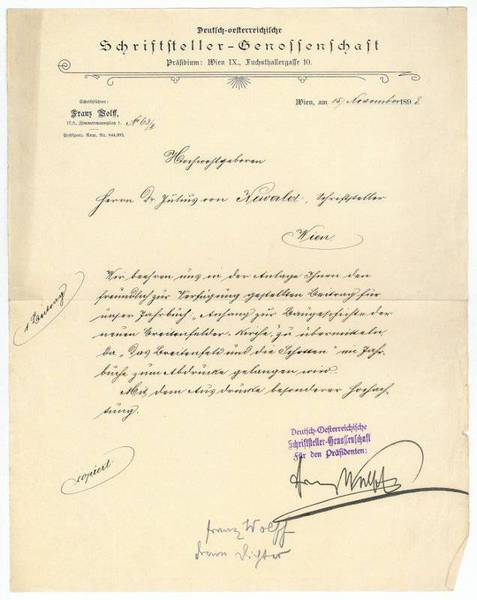 Deutsch-oesterreichische
Schriftsteller-Genossenschaft
Präsidium: Wien IX., Fuchsthallergasse 10.
Schriftführer:
Franz Wolff,
Wien, am 15/ November 1898.
Hochwohlgeboren
Herrn Dr Julius von , Schriftsteller
Wien
Wir beehren uns in der Anlage Ihnen den
freundlich zur Verfügung gestellten Beitrag für
unser Jahrbuch, „Anhang zur Baugeschichte der
neuen Breitenfelder-Kirche“, zu übermitteln,
da „Das Breitenfeld und die Schotten“ im Jahr-
buche zum Abdrucke gelangen wird.
Mit dem Ausdrucke besonderer Hochach-
tung.
1 Beitrag
copiert
Deutsch-Oesterreichische
Schriftsteller-Genossenschaft
Für den Präsidenten:
Franz Wolff
Franz Wolff
Dichter